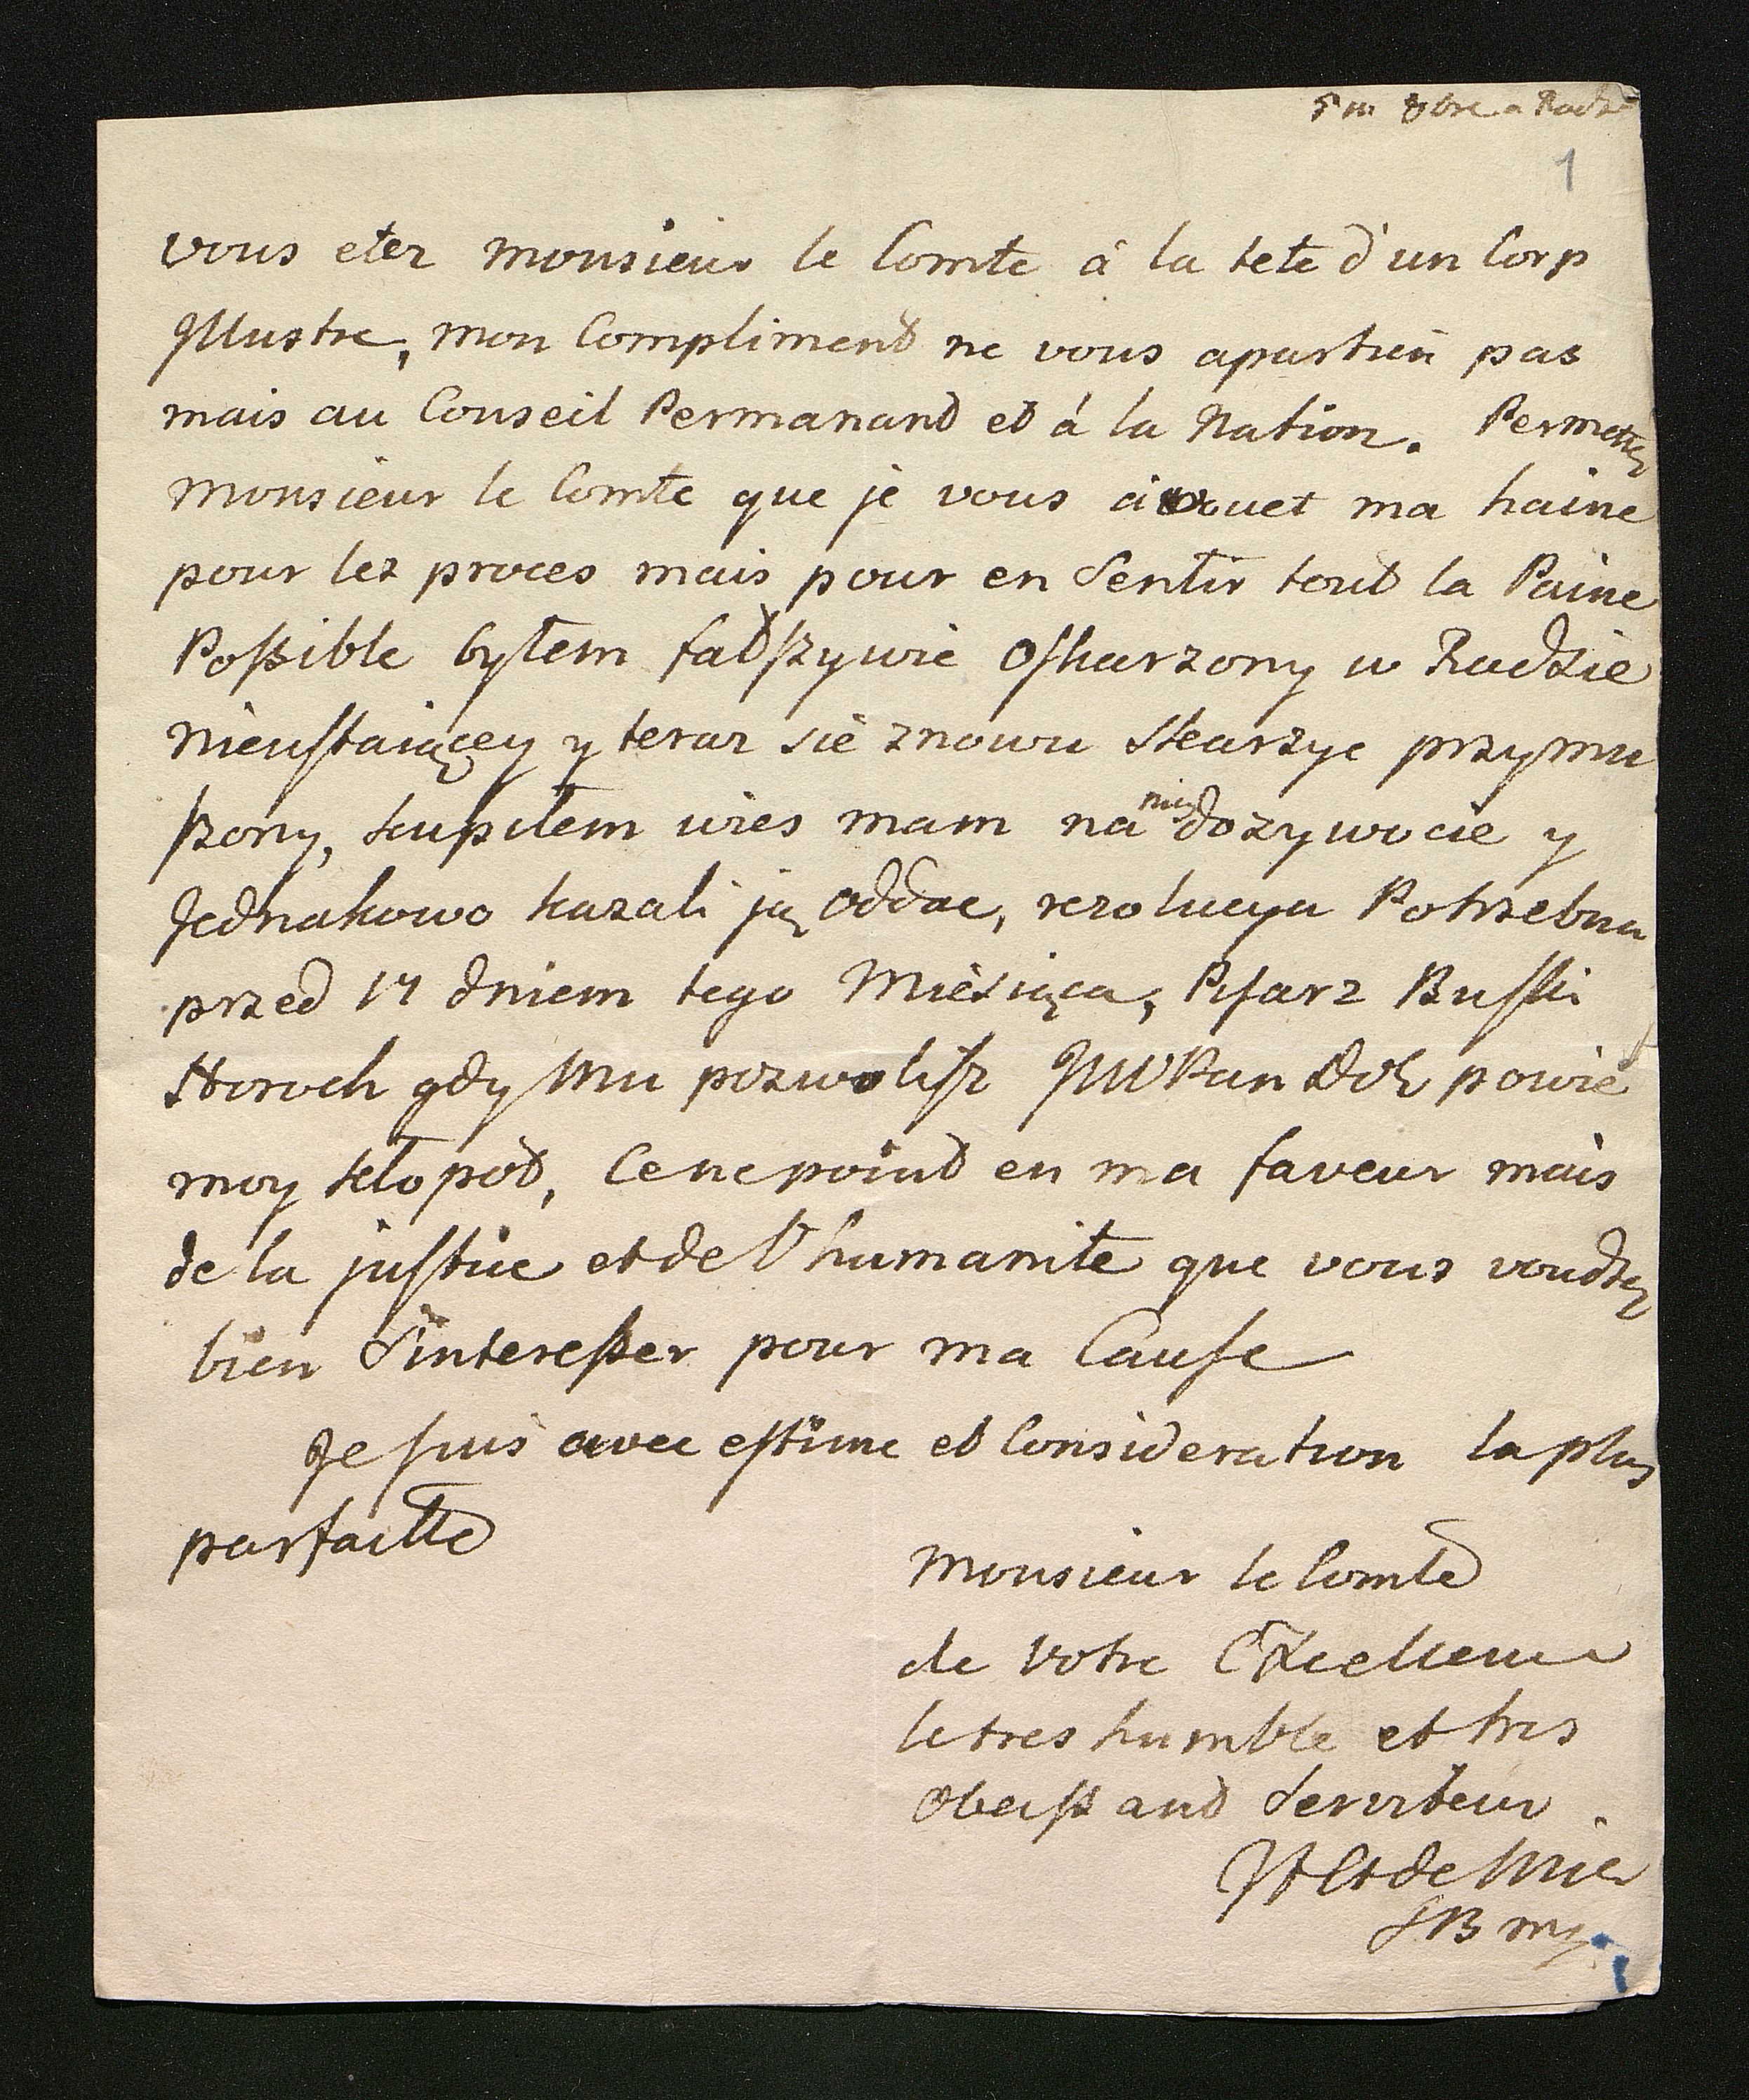 1
vous etez monsieur le Comte à la tete d'un Corp
Illustre, mon Compliment ne vous apartien pas
mais au Conseil Permanand et à la Nation. Permettez
monsieur le Comte que je vous avouet ma haine
pour lez proces mais pour en Sentir tout la Paine
Possible byłem fałszywie Oskarzony w Radzie
nieustaiącey y teraz sie znowu Skarzyc przymu
szony, kupiłem wies mam na niey dozywocie y
Jednakowo kazali ją oddac, rezolucya Potrzebna
przed 17 dniem tego Miesiąca, Pisarz Buski
Horoch gdy Mu pozwolisz JWPan Dob powie
moy kłopot, Ce ne point en ma faveur mais
de la justice et de l'humanite que vous voudrez
bien S'interesser pour ma Cause
Je suis avec estime et Consideration la plus
parfaitte
Monsieur le Comte
de Votre EXcellence
le tres humble et tres
Obeissand Serviteur
de Mier